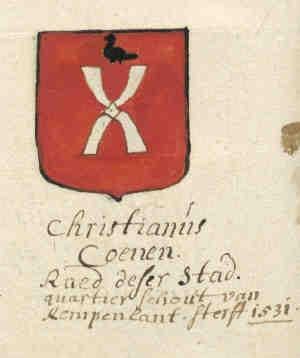 Christianüs
Coenen.
Raed deser Stad.
quartier schout van
Kempenlant. sterft 1531.